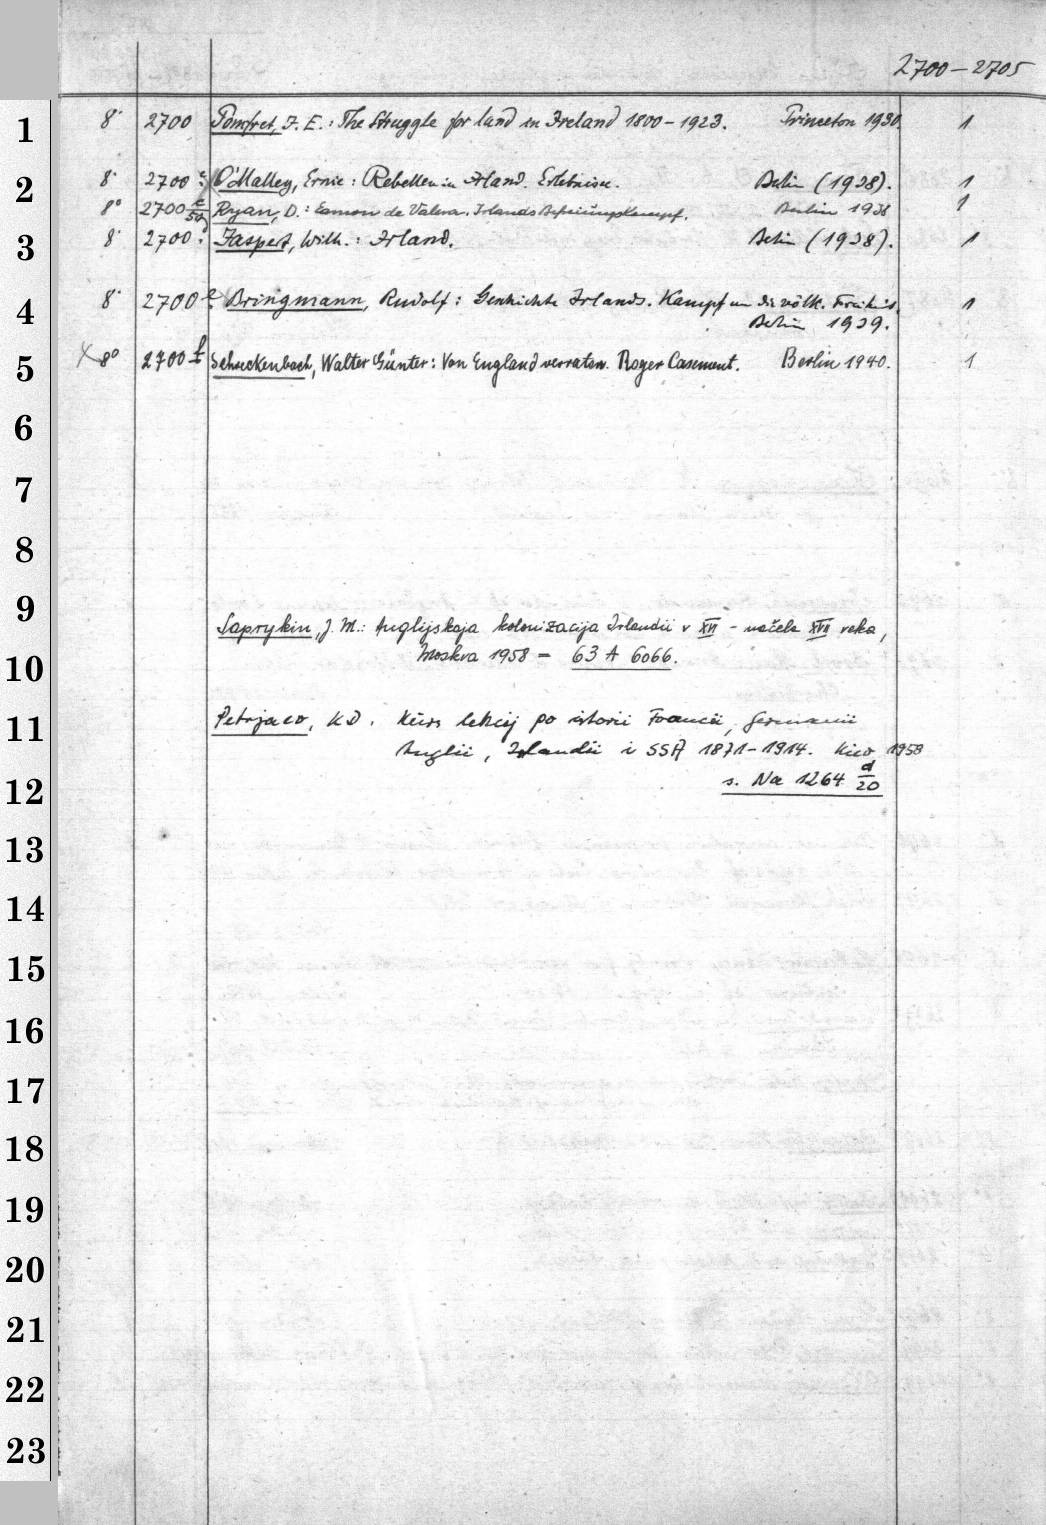 2700-2705
1 8° 2700 Pomfret, J. E.: The Struggle for land in Ireland 1800-1923. Princeton 1930. 1
2 8° 2700 c O'Malley, Ernie: Rebellen in Irland. Erlebnisse. Berlin (1938). 1
8° 2700 c/50 Ryan, D.: Eamon de Valera. Irlands Befreiungskampf. Berlin 1938 1
3 8° 2700 Jaspert, Wilh.: Irland. Berlin (1938). 1
4 8° 2700 e Bringmann, Rudolf: Geschichte Irlands. Kampf um die völk. Freiheit. 1
Berlin 1939.
5 8° 2700 f Schneckenbach, Walter Günter: Von England verraten. Roger Casement. Berlin 1940. 1
6
7
8
9
Saprykin, J. M.: Anglijskaja kolonizacija Irlandii v XVI - načele XVII veka,
10 Moskva 1958 = 63 A 6066.
11 Petrjaev, K.D. Kurs lekcij po istorii Francii, Germanii
Anglii, Irlandii i SSA 1871-1914. Kiev 1959
12 s. Na 1264 d/20
13
14
15
16
17
18
19
20
21
22
23